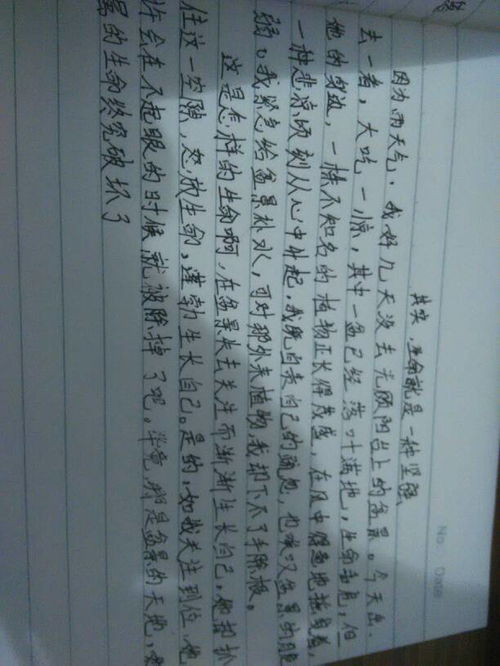 No.
Date
其实,生命就是一种坚强
因为雨天气,我好几天没去无顾阳台上的盆景。今天出
去一看,大吃一惊,其中一盆已经落叶满地,生命垂危,但
他的身边,一株不知名的植物正长得茂盛,在风中得意地摇曳着,
一种悲凉顷刻从心中升起,我既自责自己的疏忽,也叹又盆景的脆
弱。我紧急给盆景补水,可对那外来植物,我却下不了手除根。
这是怎样的生命啊,在盆景失去失生而渐渐生长自己,他却抓
住这一空隙,怒放生命,蓬勃生长自己。是的,如我关注到位,他
许会在不起眼的时候就被除掉了吧。毕竟那是盆景的天地,
景的生命终究破坏了